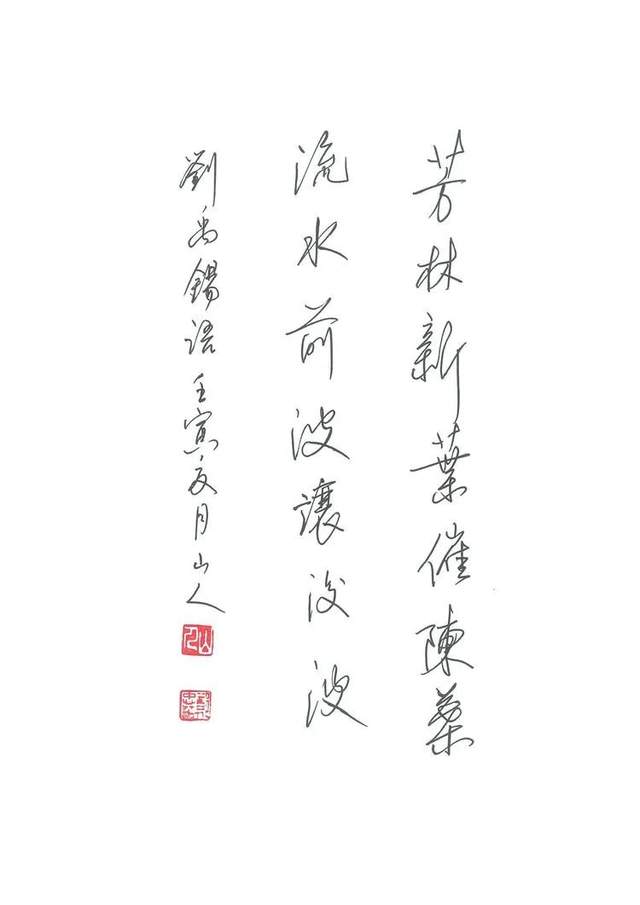 芳林新葉催陳葉
流水前波讓後波
劉禹錫語壬寅夏月山人
山人